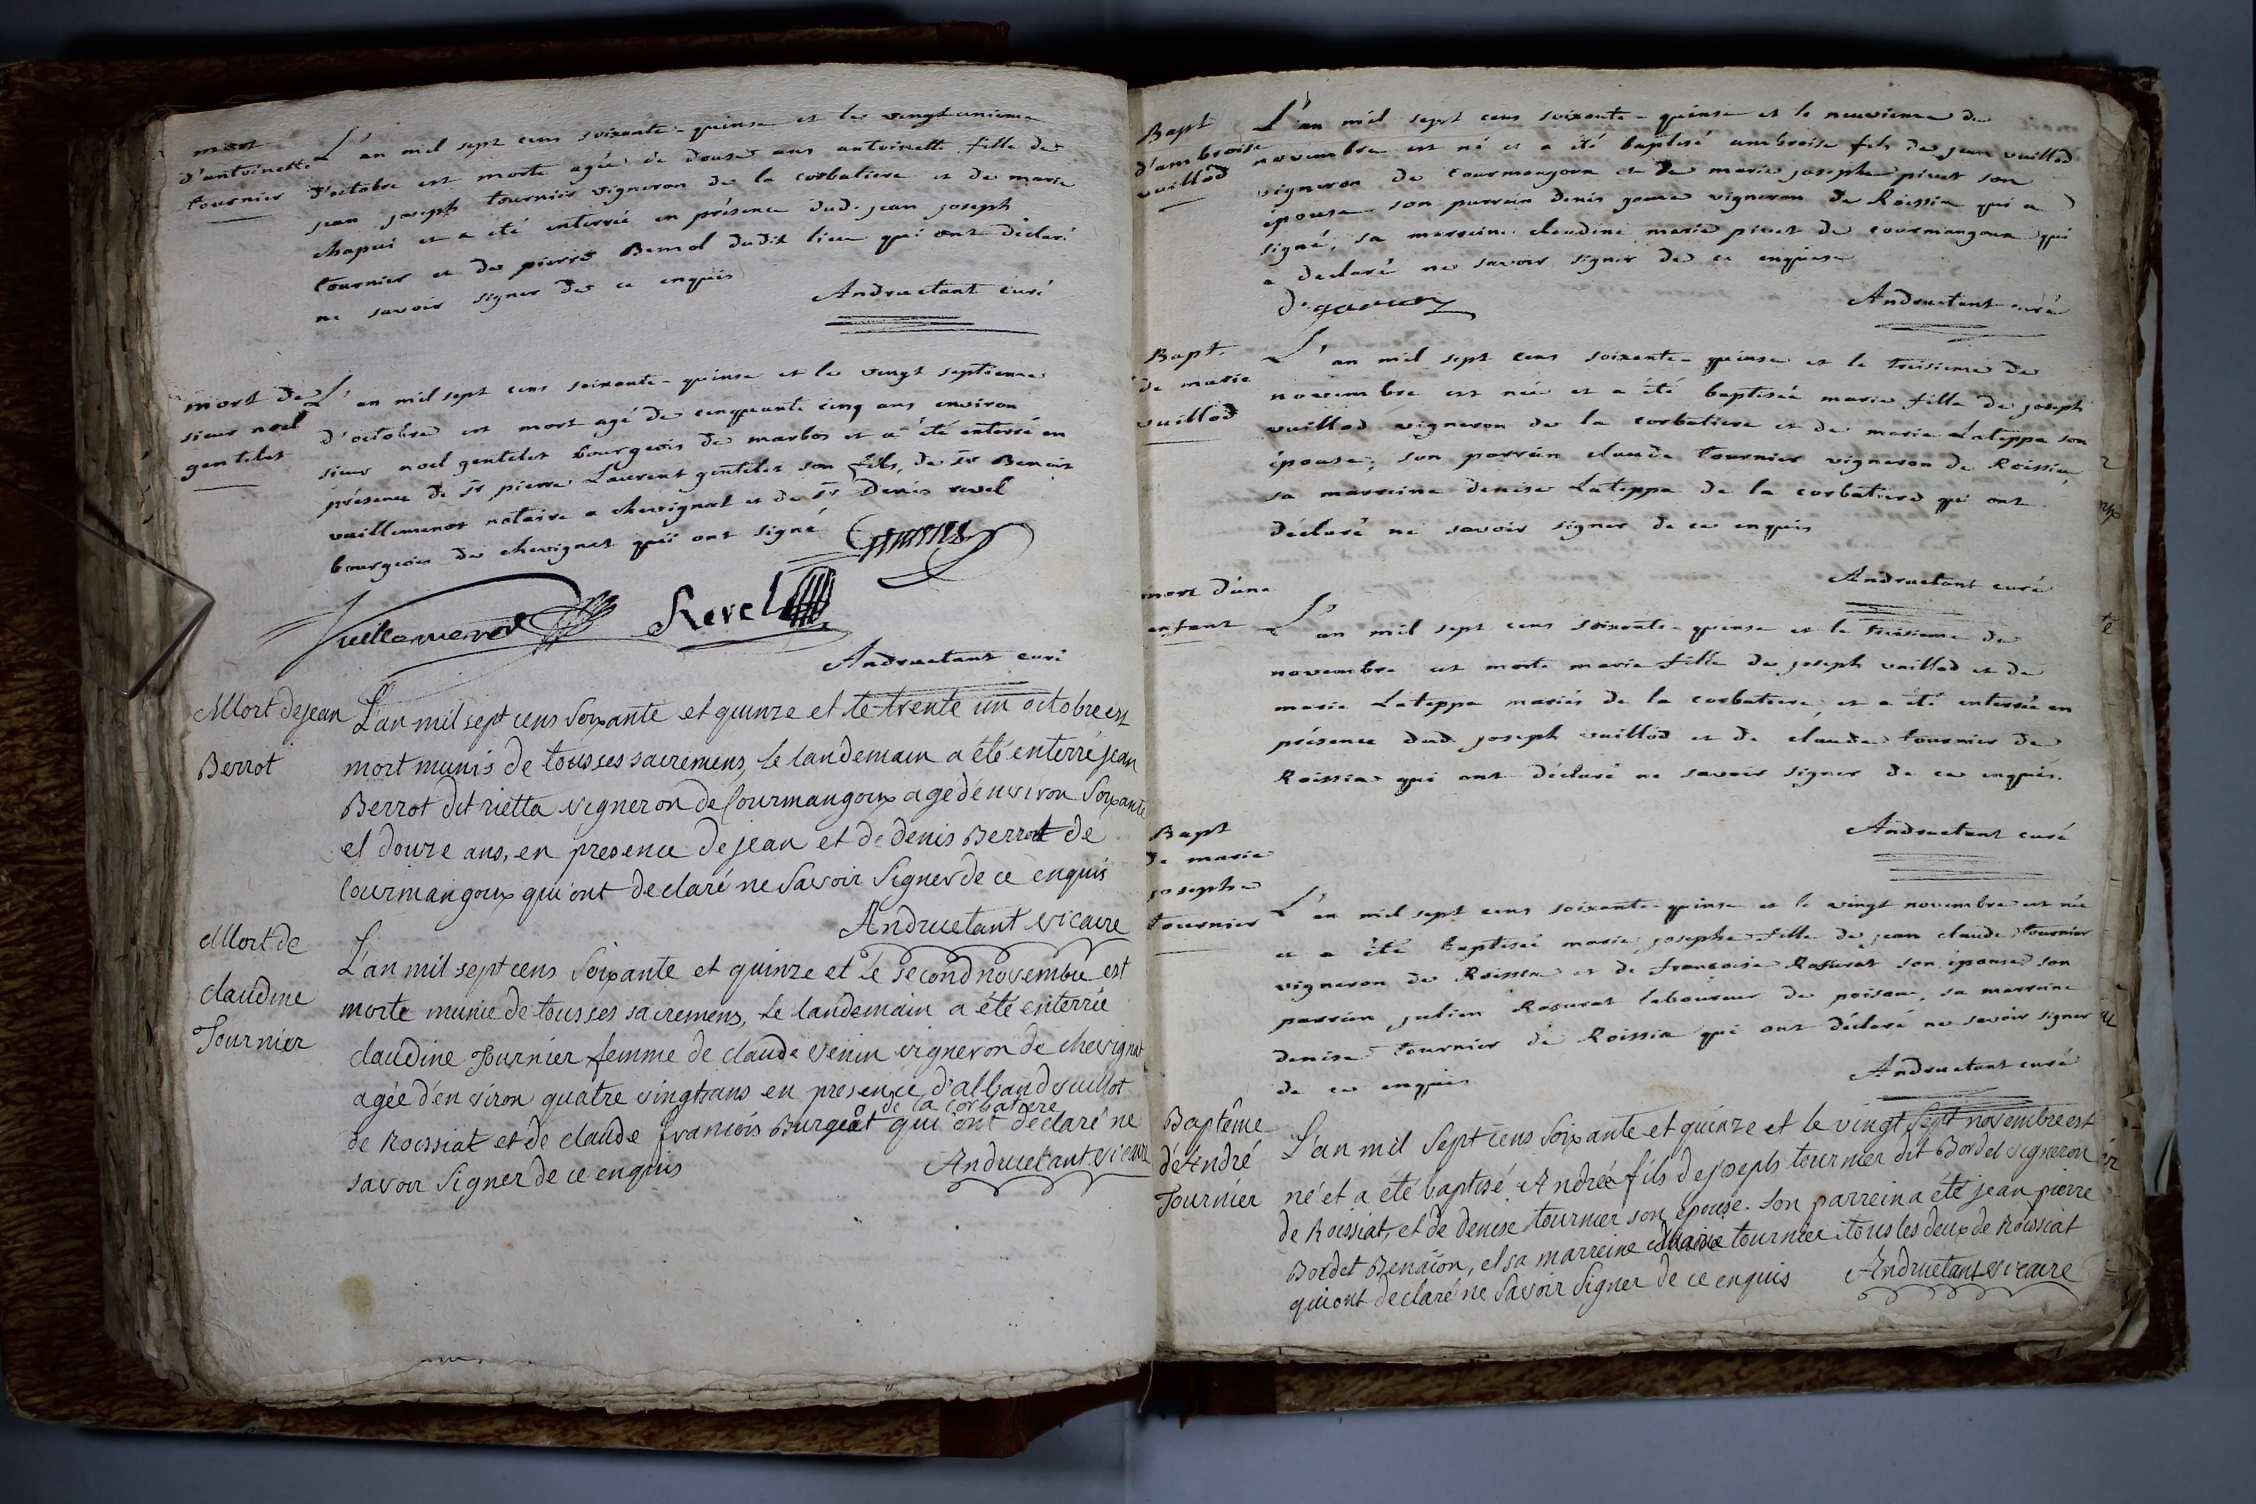 mort
d'antoinette
tournier
L'an mil sept cens soixante-quinse et le vingt unieme
d'octobre est morte agée de douse ans antoinette fille de
jean joseph tournier vigneron de la corbatiere et de marie
chapui et a été enterrée en présence dud. jean joseph
tournier et de pierre Bemol dudit lieu qui ont déclaré
ne savoir signer de ce enquis
Andruetant curé
mort de
sieur noel
gentelet
L'an mil sept cens soixante-quinse et le vingt septieme
d'octobre est mort agé de cinquante cinq ans environ
sieur noel gentelet bourgeois de marbos et a été enterré en
présence de Sr pierre Laurent gentelet son fils, de Sr Benoit
vuillemenot notaire a chevignat et de Sr Denis revel
bourgeois de chevignat qui ont signé
Vuillemenot Revel
Andruetant curé
Mort de jean
Berrot
L'an mil sept cens soixante et quinze et le trente un octobre est
mort munis de tous ses sacremens, le landemain a été enterré jean
Berrot dit rietta vigneron de Courmangoux agé d'environ soixante
et douze ans, en presence de jean et de denis Berrot de
Courmangoux qui ont declaré ne savoir signer de ce enquis
Andruetant vicaire
Mort de
claudine
Tournier
L'an mil sept cens soixante et quinze et le second novembre est
morte munie de tous ses sacremens, le landemain a été enterrée
claudine Tournier femme de claude venin vigneron de chevignat
agée d'environ quatre vingts ans en presence d'alband vuillot
de la corbatiere
de Roissiat et de claude francois Burgeat qui ont declaré ne
savoir signer de ce enquis
Andruetant vicaire
Bapt
d'ambroise
vuillod
L'an mil sept cens soixante-quinse et le neuvieme de
novembre est né et a été baptisé ambroise fils de jean vuillod
vigneron de Courmangoux et de marie josephe pivet son
épouse son parrein denis goure vigneron de Roissia qui a
signé, sa marreine claudine marie pivet de courmangoux qui
a declaré ne savoir signer de ce enquise
Andruetant curé
Bapt.
de marie
vuillod
L'an mil sept cens soixante-quinse et le treisieme de
novembre est née et a été baptisée marie fille de joseph
vuillod vigneron de la corbatiere et de marie Lateppe son
épouse, son parrein claude tournier vigneron de Roissia,
sa marreine denise Lateppe de la corbatiere qui ont
déclaré ne savoir signer de ce enquis
Andruetant curé
mort d'une
enfant
L'an mil sept cens soixante-quinse et le treisieme de
novembre est morte marie fille de joseph vuillod et de
marie Lateppe mariés de la corbatiere, et a été enterrée en
présence dud. joseph vuillod et de claude tournier de
Roissia qui ont déclaré ne savoir signer de ce enquis.
Andruetant curé
Bapt
de marie
josephe
tournier
L'an mil sept cens soixante-quinse et le vingt novembre est née
et a été baptisée marie josephe fille de jean claude tournier
vigneron de Roissia et de francoise Rasurat son épouse, son
parrein julien Rasurat laboureur de poisoux, sa marreine
denise tournier de Roissia qui ont déclaré ne savoir signer
de ce enquis
Andruetant curé
Baptême
d'André
Tournier
L'an mil sept cens soixante et quinze et le vingt sept novembre est
né et a été baptisé André fils de joseph tournier dit Bordet vigneron
de Roissiat, et de denise tournier son epouse. son parrein a été jean pierre
Bordet Benaion, et sa marreine marie tournier tous les deux de Roissiat
qui ont declaré ne savoir signer de ce enquis
Andruetant vicaire